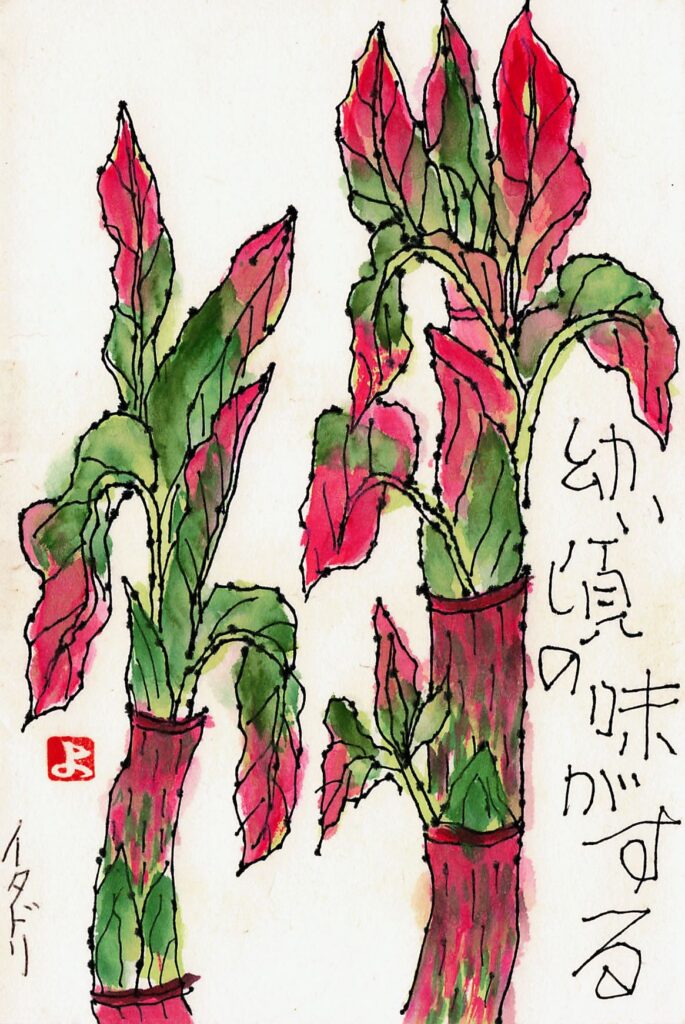 幼い頃の
味がする
イタドリ
よ